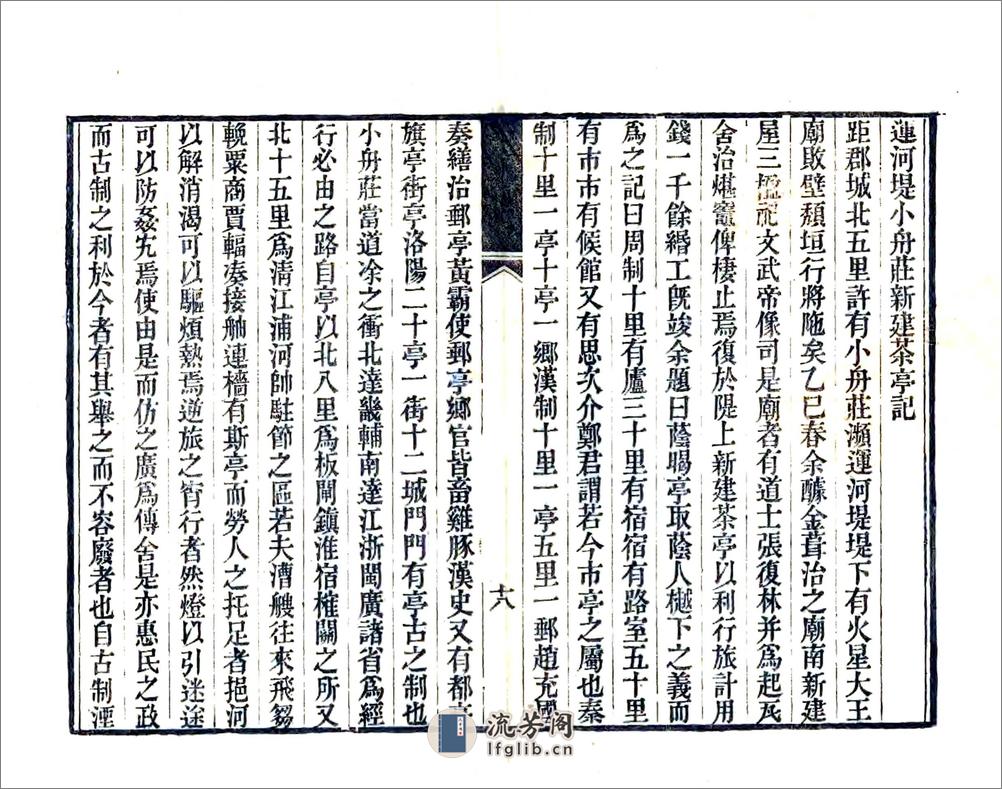 運河堤小舟莊新建茶亭記
距郡城北五里許有小舟莊瀕運河堤堤下有火星大王
廟敗壁頹垣行將陁矣乙巳春余醵金葺治之廟南新建
屋三楹祀文武帝像司是廟者有道士張復林并爲起瓦
舍治煁竈俾棲止焉復於隄上新建茶亭以利行旅計用
錢一千餘緡工旣竣余題曰蔭暍亭取蔭人樾下之義而
爲之記曰周制十里有廬三十里有宿宿有路室五十里
有市市有候館又有思次介鄭君謂若今市亭之屬也秦
制十里一亭十亭一鄉漢制十里一亭五里一郵趙充國
十八
奏繕治郵亭黃霸使郵亭鄉官皆畜雞豚漢史又有都亭
旗亭街亭洛陽二十亭一街十二城門門有亭古之制也
小舟莊當道涂之衝北達畿輔南達江浙閩廣諸省爲經
行必由之路自亭以北八里爲板閘鎮淮宿榷關之所又
北十五里爲淸江浦河帥駐節之區若夫漕艘往來飛芻
輓粟商賈輻湊接舳連檣有斯亭而勞人之托足者挹河
以解消渴可以驅煩熱焉逆旅之宵行者然燈以引迷途
可以防姦宄焉使由是而仿之廣爲傳舍是亦惠民之政
而古制之利於今者有其舉之而不容廢者也自古制湮
流芳阁
lfglib.cn